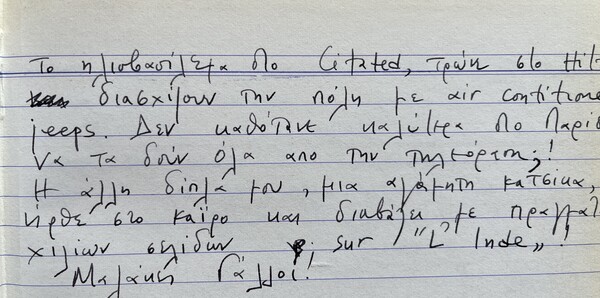 Το ηλιοβασίλεμα στο Citated, τρώνε στο Hilt
διασχίζουν την πόλη με air contitione
jeeps. Δεν καθόταν καλύτερα στο Παρίσ
να τα δουν όλα απο την τηλεόραση;!
Η άλλη δίπλα μου, μια αγάμητη κατσίκα,
ήρθε στο Καϊρο και διαβάζει με πραγμα
χιλίων σελίδων sur "L' Inde"!
Μαλάκες Γάλλοι!